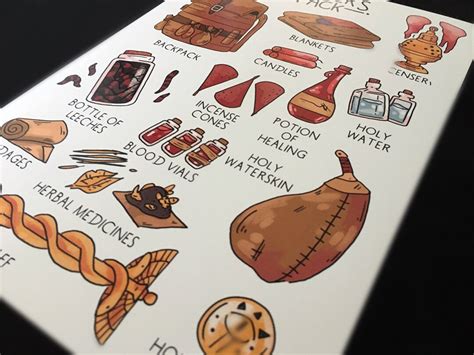 PACK
BACKPACK
BLANKETS
CENSER
CANDLES
BOTTLE OF
LEECHES
INCENSE
CONES
POTION
OF
HEALING
HOLY
WATER
BLOOD VIALS
HOLY
WATERSKIN
HERBAL MEDICINES